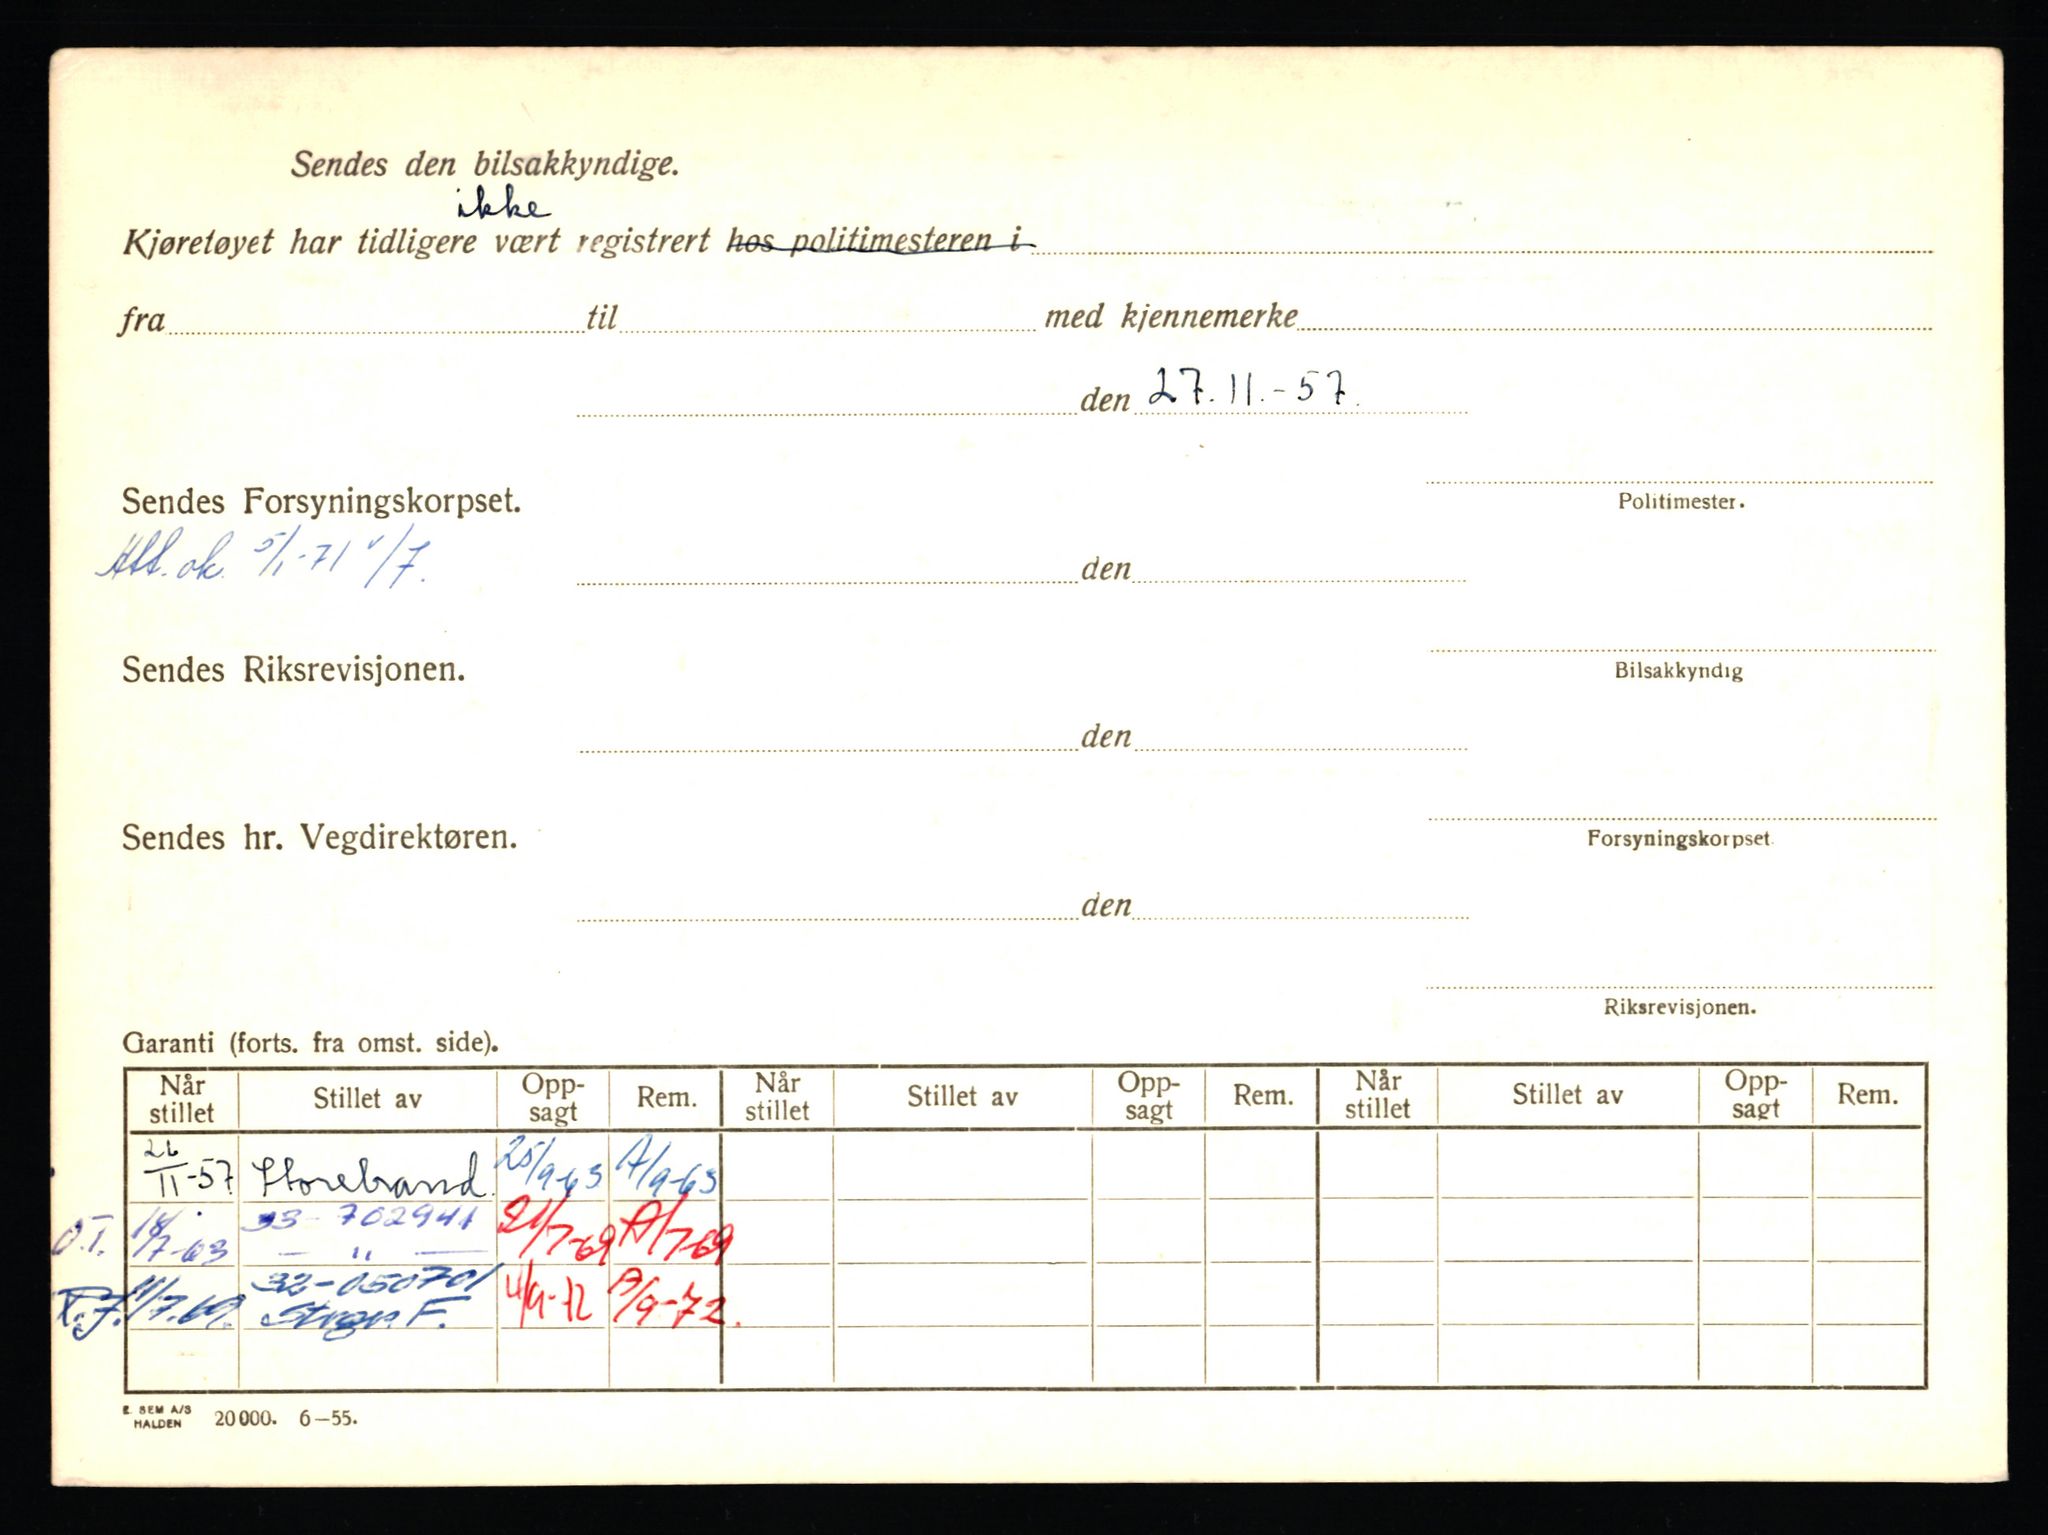 Sendes den bilsakkyndige.
ikke
Kjøretøyet har tidligere vært registrert hos politimesteren i
fra til med kjennemerke
den 27.11.-57.
Sendes Forsyningskorpset.
Politimester.
Att. ok. 5/1-71 /7.
den
Sendes Riksrevisjonen.
Bilsakkyndig
den
Sendes hr. Vegdirektøren.
Forsyningskorpset.
den
Riksrevisjonen.
Garanti (forts. fra omst. side).
Når stillet Stillet av Opp-sagt Rem. Når stillet Stillet av Opp-sagt Rem. Når stillet Stillet av Opp-sagt Rem.
26/11-57 Storebrand. 25/9-63 A/9-63
Ø.I. 18/7-63 33-702941 21/7-69 A/7-69
— " —
11/7.69. 32-050701 4/9-72 A/9-72.
F.
E. SEM A/S
HALDEN 20000. 6–55.